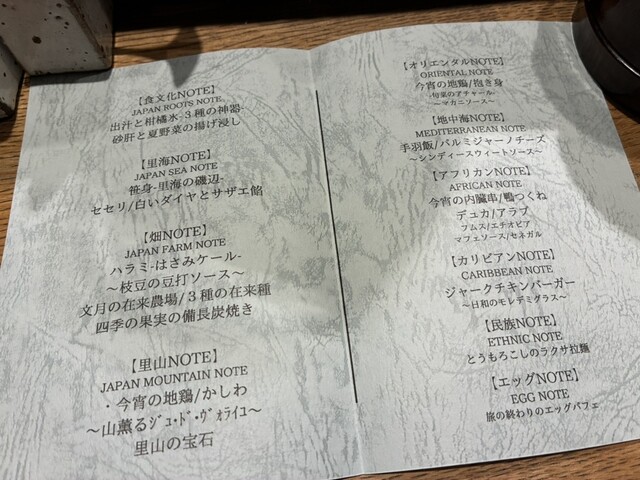 【食文化NOTE】
JAPAN ROOTS NOTE
出汁と柑橘氷-３種の神器-
砂肝と夏野菜の揚げ浸し
【里海NOTE】
JAPAN SEA NOTE
笹身-里海の磯辺-
セセリ/白いダイヤとサザエ餡
【畑NOTE】
JAPAN FARM NOTE
ハラミ-はさみケール-
～枝豆の豆打ソース～
文月の在来農場/３種の在来種
四季の果実の備長炭焼き
【里山NOTE】
JAPAN MOUNTAIN NOTE
・今宵の地鶏/かしわ
～山薫るｼﾞｭ・ﾄﾞ・ｳﾞｫﾗｲﾕ～
里山の宝石
【オリエンタルNOTE】
ORIENTAL NOTE
今宵の地鶏/抱き身
-旬菜のアチャール-
～マカニソース～
【地中海NOTE】
MEDITERRANEAN NOTE
手羽飯/パルミジャーノチーズ
～シンディースウィートソース～
【アフリカンNOTE】
AFRICAN NOTE
今宵の内臓串/鴨つくね
デュカ/アラブ
フムス/エチオピア
マフェソース/セネガル
【カリビアンNOTE】
CARIBBEAN NOTE
ジャークチキンバーガー
～日和のモレデミグラス～
【民族NOTE】
ETHNIC NOTE
とうもろこしのラクサ拉麺
【エッグNOTE】
EGG NOTE
旅の終わりのエッグパフェ